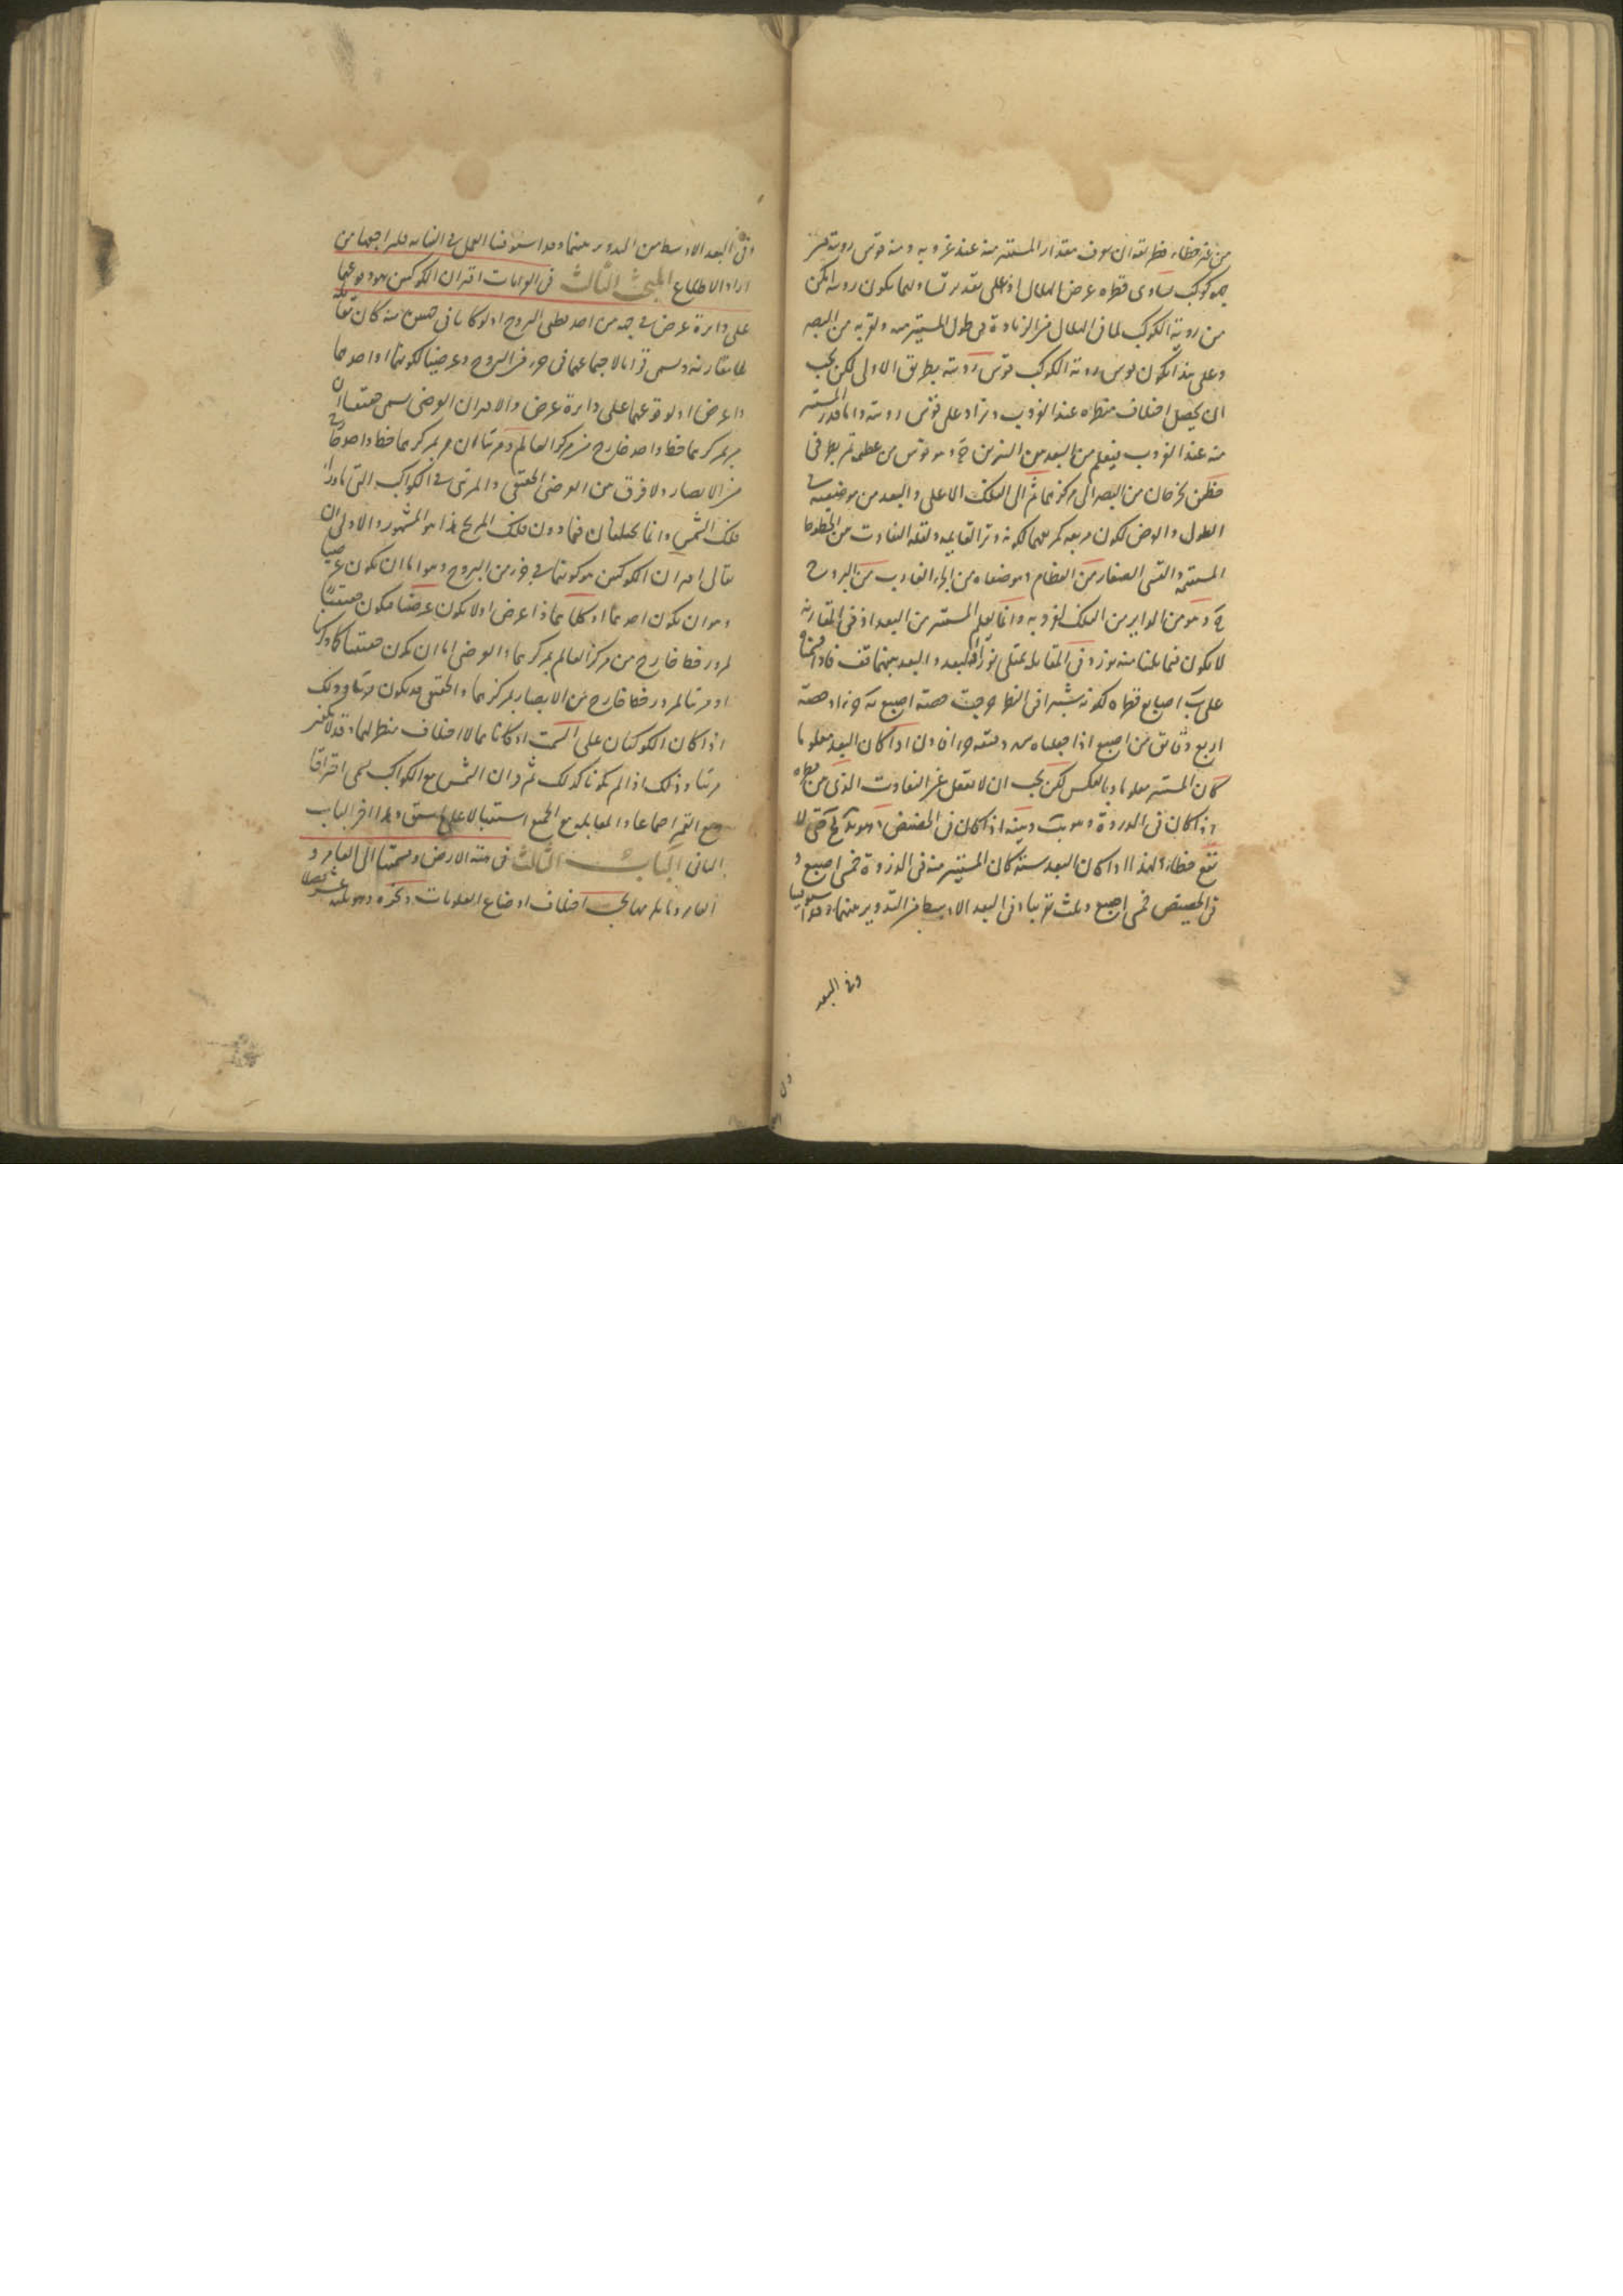 من غير خطاء فطريقه ان يعرف مقدار المستنير منه عند غروبه ومنه قوس رويته
كوكب يساوى قطره عرض الهلال اذ على تقدير تساويهما يكون رويته امكن
من روية الكوكب لما فى الهلال من الزيادة فى طول المستنير منه وقربه من البصر
وعلى هذا يكون قوس روية الكوكب قوس رويته بطريق الاولى لكن يجب
ان يحصل اختلاف منظره عند الغروب ويزاد على قوس رويته واما قدر المستنير
منه عند الغروب فيعلم من البعد بين النيرين ح وهو قوس من عظيمة تمر بطرفى
خطين يخرجان من البصر الى مركزيهما ثم الى الفلك الاعلى والبعد من موضعيه فى
الطول والعرض لكون مربعه كمربعيهما لكونه وتر القايمه ولقلة التفاوت بين الخطوط
المستقيمه والقسى الصغار من العظام وموضعاه من الجزء الغارب من البروج
ح وهو من الداير من الفلك لغروبه وانما يعلم المستنير من البعد اذ فى المقارنة
لا يكون فيما يلينا منه نور وفى المقابلة يمتلى نورا والبعد بينهما قف فاذا قسمناه
على يب اصابع قطره لكونه شبرا فى النظر خرجت حصة اصبع يه وزاد حصة
اربع دقايق من اصبع اذا جعلناه دقيقه فاذن اذا كان البعد معلوما
كان المستنير معلوما وبالعكس لكن يجب ان لا يغفل عن التفاوت الذى من قطره
اذ كان فى الذروة وبينه اذا كان فى الحضيض حتى لا
يقع خطاء ولهذا اذا كان البعد ستة كان المستنير منه فى الذروة خمس اصبع و
فى الحضيض خمس اصبع وثلث تقريبا وفى البعد الاوسط من التدوير بينهما وقد استوفينا
وفى البعد
وفى البعد الاوسط من التدوير بينهما وقد استوفينا العمل فى النهاية فليراجعها من
اراد الاطلاع المبحث الثالث فى القرانات اقتران الكوكبين هو وقوعهما
على دايرة عرض فى جهة من احد قطبى البروج او لو كانا فى جهتين منه كان تقابلا
لا مقارنه ويسمى قرانا لاجتماعهما فى جزء من البروج وعرضيا لكونهما او احدهما
ذا عرض او لوقوعهما على دايرة عرض والاقتران العرضى يسمى حقيقيا ان
مر بمركزيهما خط واحد خارج من مركز العالم ومرئيا ان مر بمركزيهما خط واحد خارج
من الابصار ولا فرق بين العرضى الحقيقى والمرئى فى الكواكب التى ما وراء
فلك الشمس وانما يختلفان فيما دون فلك المريخ هذا هو المشهور والاولى ان
يقال اقتران الكوكبين هو كونهما فى جزء من البروج وهو اما ان يكون عرضيا
وهو ان يكون احدهما او كلاهما ذا عرض او لا يكون عرضيا فيكون حقيقيا
لمرور خط خارج من مركز العالم بمركزيهما والعرضى اما ان يكون حقيقيا كما ذكرنا
او مرئيا لمرور خط خارج من الابصار بمركزيهما والحقيقى قد يكون مرئيا وذلك
اذا كان الكوكبان على السمت او كانا مما لا اختلاف منظر لهما وقد لا يكون
مرئيا وذلك اذا لم يكونا كذلك ثم قران الشمس مع الكواكب يسمى احتراقا
ومع القمر اجتماعا والمقابلة مع الجميع استقبالا على ما سبق وهذا اخر الباب
الثانى الباب الثالث فى هيئة الارض وقسمتها الى العامر و
الغامر وما يلزمها بحسب اختلاف اوضاع العلويات وغيره وهو ثلثة عشر فصلا